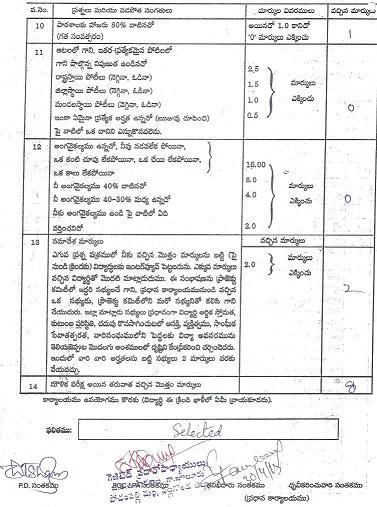 వ.నెం. ప్రశ్నలు మరియు పరిశోధన సంగతులు మార్కుల వివరములు వచ్చిన మార్కులు
10 పాఠశాలకు హాజరు 80% దాటినచో అయినచో 1.0 కానిచో 1
(గత సంవత్సరం) '0' మార్కులు ఎక్కించు
11 ఆటలలో గాని, ఇతర ప్రత్యేకమైన పోటీలలో
గాని పాల్గొన్న నిపుణత ఉండినచో 2.5
రాష్ట్రస్థాయి పోటీలు (నెగ్గినా, ఓడినా) 1.5 మార్కులు
జిల్లాస్థాయి పోటీలు (నెగ్గినా, ఓడినా) 1.0 ఎక్కించు 0
మండలస్థాయి పోటీలు (నెగ్గినా, ఓడినా) 0.5
ఇంకా ఏమైనా ప్రత్యేక అర్హత ఉన్నచో (ఋజువు చూపించి)
పై వాటిలో ఒక దానిని ఎన్నుకొనవలెను.
12 అంగవైకల్యము ఉన్నచో, నీవు నడవలేక పోయినా,
ఒక కంటి చూపు లేకపోయినా, ఒక చేయి లేకపోయినా 15.00
ఒక కాలు లేకపోయినా 8.0
నీ అంగవైకల్యము 40% దాటినచో 4.0 మార్కులు
నీ అంగవైకల్యము 40-30% మధ్య ఉన్నచో ఎక్కించు 0
నీకు అంగవైకల్యము ఉండి పై వాటిలో ఏది 2.0
వర్తించనిచో
13 సమావేశ మార్కులు వచ్చిన మార్కులు
ఎగువ ప్రశ్న పత్రములో నీకు వచ్చిన మొత్తం మార్కులను బట్టి (పై 2.0 మార్కులు
నుండి క్రిందకు) విద్యార్థులకు ఇంటర్వ్యూకి పెట్టబడును. ఎక్కువ మార్కులు ఎక్కించు
వచ్చిన విద్యార్థితో మొదటి మాట్లాడుదురు. ఈ సంభాషణను ప్రాజెక్టు
కమిటీలో ఇద్దరి సభ్యులచే గాని, ప్రధాన కార్యాలయమునుండి వచ్చిన
ఒక సభ్యుడు, ప్రాజెక్టు కమిటీలోని మరో సభ్యునితో కలిసి గాని 2
చేయుదురు. ఇట్లా మాట్లాడు సభ్యులు ప్రధానంగా విద్యార్థి ఆర్థిక స్తోమత,
కుటుంబ పరిస్థితి, చదువు కొనసాగించుటలో ఆసక్తి, వ్యక్తిత్వము, సాంఘిక
సేవాతత్పరత, వారిసంఘములోని పెద్దలకు విద్యా అవసరమును
తెలియజేస్తుట మొదలగు అంశములలో దృష్టిని కేంద్రీకరించి చర్చించెదరు.
ఇందులో వారి వారి అర్హతలను బట్టి సభ్యులు 2 మార్కులు వరకు
వేయవచ్చు.
14 మౌఖిక పరీక్ష అయిన తరువాత వచ్చిన మొత్తం మార్కులు
కార్యాలయము ఉపయోగము కొరకు (విద్యార్థి ఈ క్రింది ఖాళీలో ఏమీ వ్రాయకూడదు).
ఫలితము: Selected
P.D. సంతకము సంతకము ధృవీకరించువారి సంతకము
(ప్రధాన కార్యాలయం)